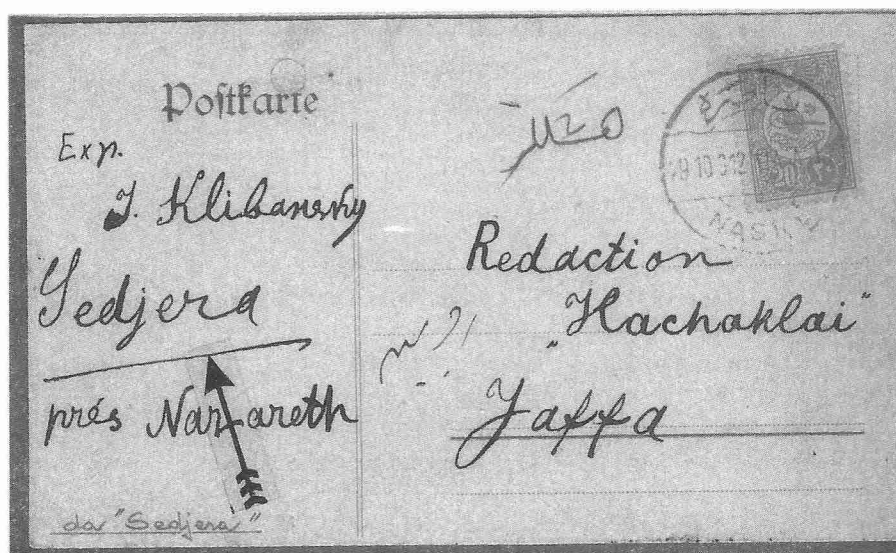 Postkarte
Exp.
J. Klibansky
Sedjera
prés Nazareth
da "Sedjera"
Redaction
„Hachaklai"
Jaffa